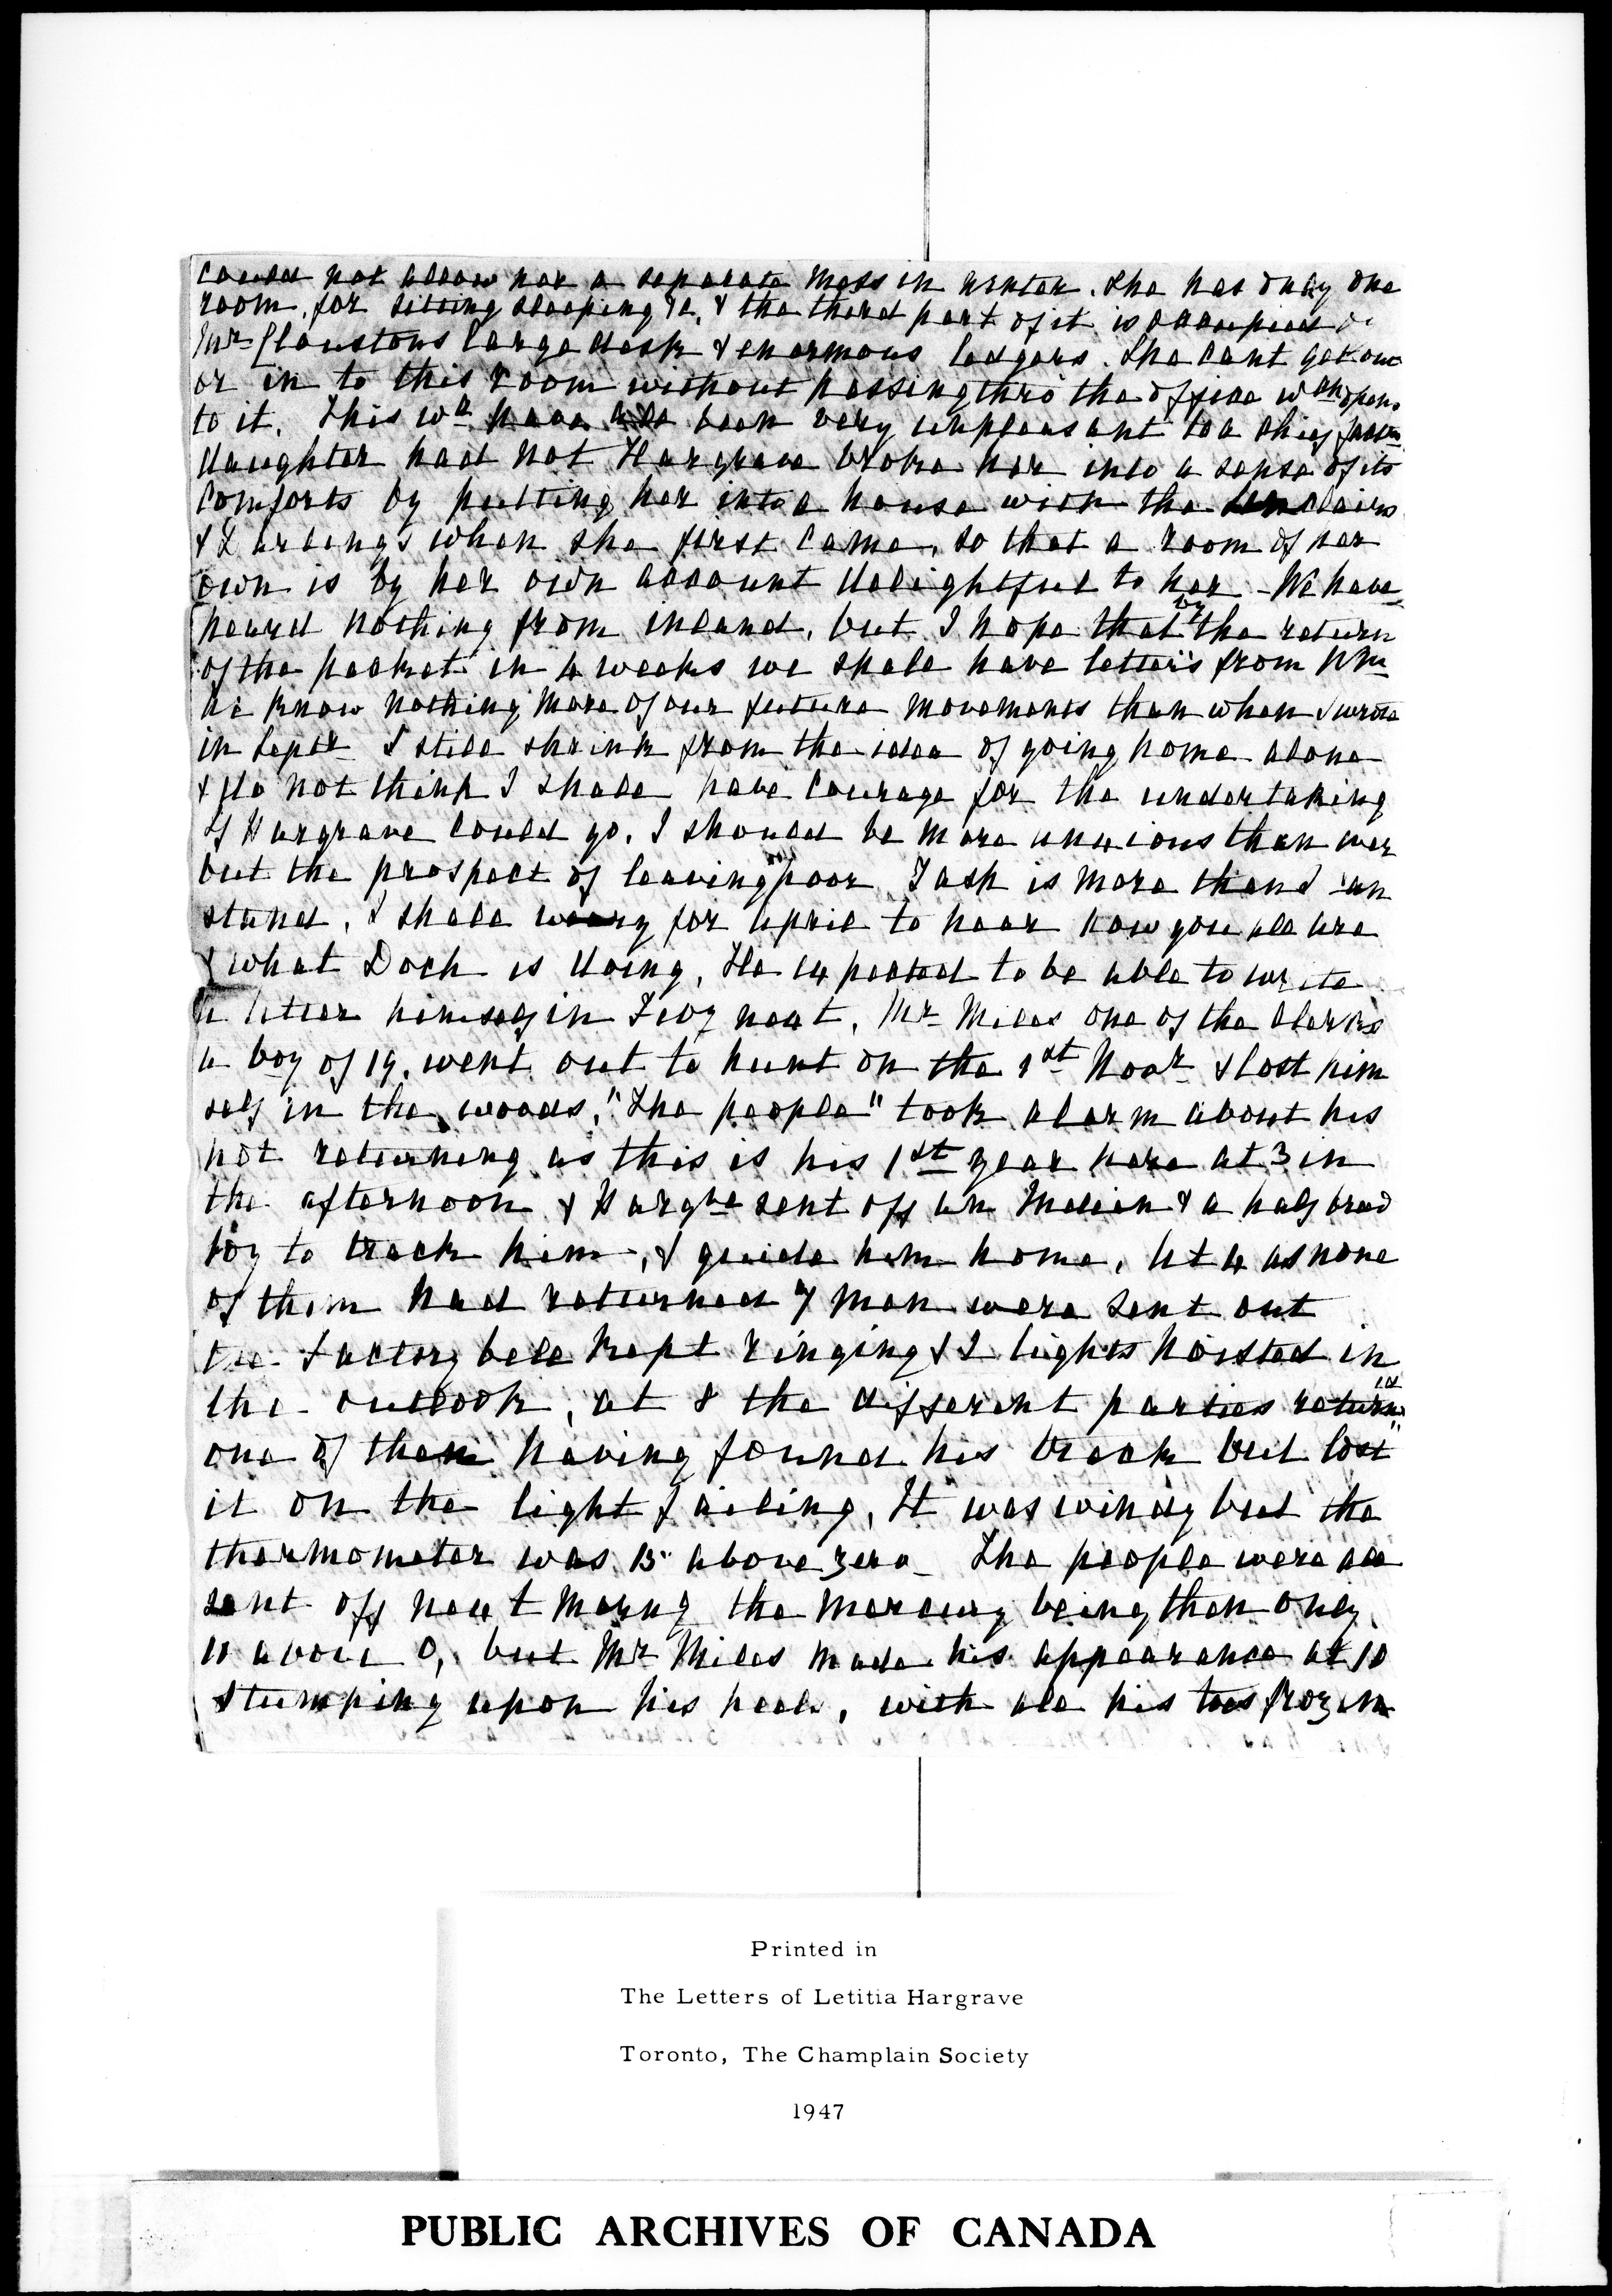 could not allow her a separate mess in winter. She has only one
room, for sitting sleeping &c, & the third part of it is occupied
Mr Cloustons large desk & enormous ledgers. She cant get out
or in to this room without passing thro the office wch opens
to it. This wd have been very unpleasant to a chief factors
daughter had not Hargrave broke her into a sense of its
comforts by putting her into a house with the Sinclairs
& Darlings when she first came, so that a room of her
own is by her own account delightful to her - We have
heard nothing from inland, but I hope that by the return
of the packet in 4 weeks we shall have letters from Wm
We know nothing more of our future movements than when I wrote
in Septr I still shrink from the idea of going home alone
& do not think I shall have courage for the undertaking
If Hargrave could go, I should be more anxious than ever
but the prospect of leaving poor Tash is more than I can
stand. I shall weary for April to hear how you all are
& what Doch is doing, He expected to be able to write
a letter himself in Feby next. Mr Miles one of the clerks
a boy of 19, went out to hunt on the 1st Novr & lost him
self in the woods, "The people" took alarm about his
not returning as this is his 1st year here at 3 in
the afternoon & Hargve sent off an Indian & a half breed
boy to track him, & guide him home. At 4 as none
of them had returned 7 men were sent out
the Factory bell kept ringing & 2 lights hoisted in
the outlook, at 8 the different parties returned
one of them having found his track but lost
it on the light failing, It was windy but the
thermometer was 15 above zero - The people were all
sent off next morng the mercury being then only
10 above 0, but Mr Miles made his appearance at 10
stumping upon his heels, with all his toes frozen
Printed in
The Letters of Letitia Hargrave
Toronto, The Champlain Society
1947
PUBLIC ARCHIVES OF CANADA